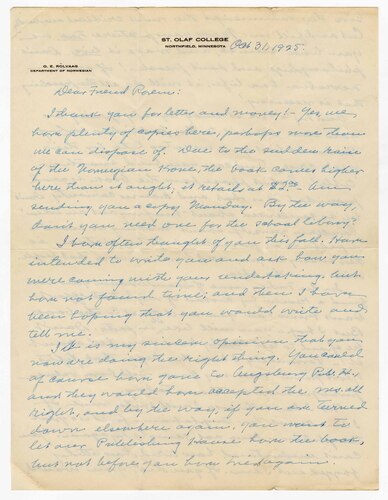 ST. OLAF COLLEGE
NORTHFIELD, MINNESOTA
Oct 31, 1925.
O. E. ROLVAAG
DEPARTMENT OF NORWEGIAN
Dear Friend
I thank you for letter and money! - Yes, we
have plenty of copies here, perhaps more than
we can dispose of. Due to the sudden raise
of the Norwegian Krone, the book comes higher
here than it ought, it retails at $2.00. Am
sending you a copy Monday. By the way,
don't you need one for the school library?
I have often thought of you this fall. Have
intended to write you and ask how you
were coming with your undertaking, but
have not found time; and then I have
been hoping that you would write and
tell me.
It is my sincere opinion that you
now are doing the right thing. You could
of course have gone to Augsburg Publ. H.,
and they would have accepted the ms. all
right, and by the way, if you are turned
down elsewhere again, you want to
let our Publishing House have the book,
but not before you have tried again.